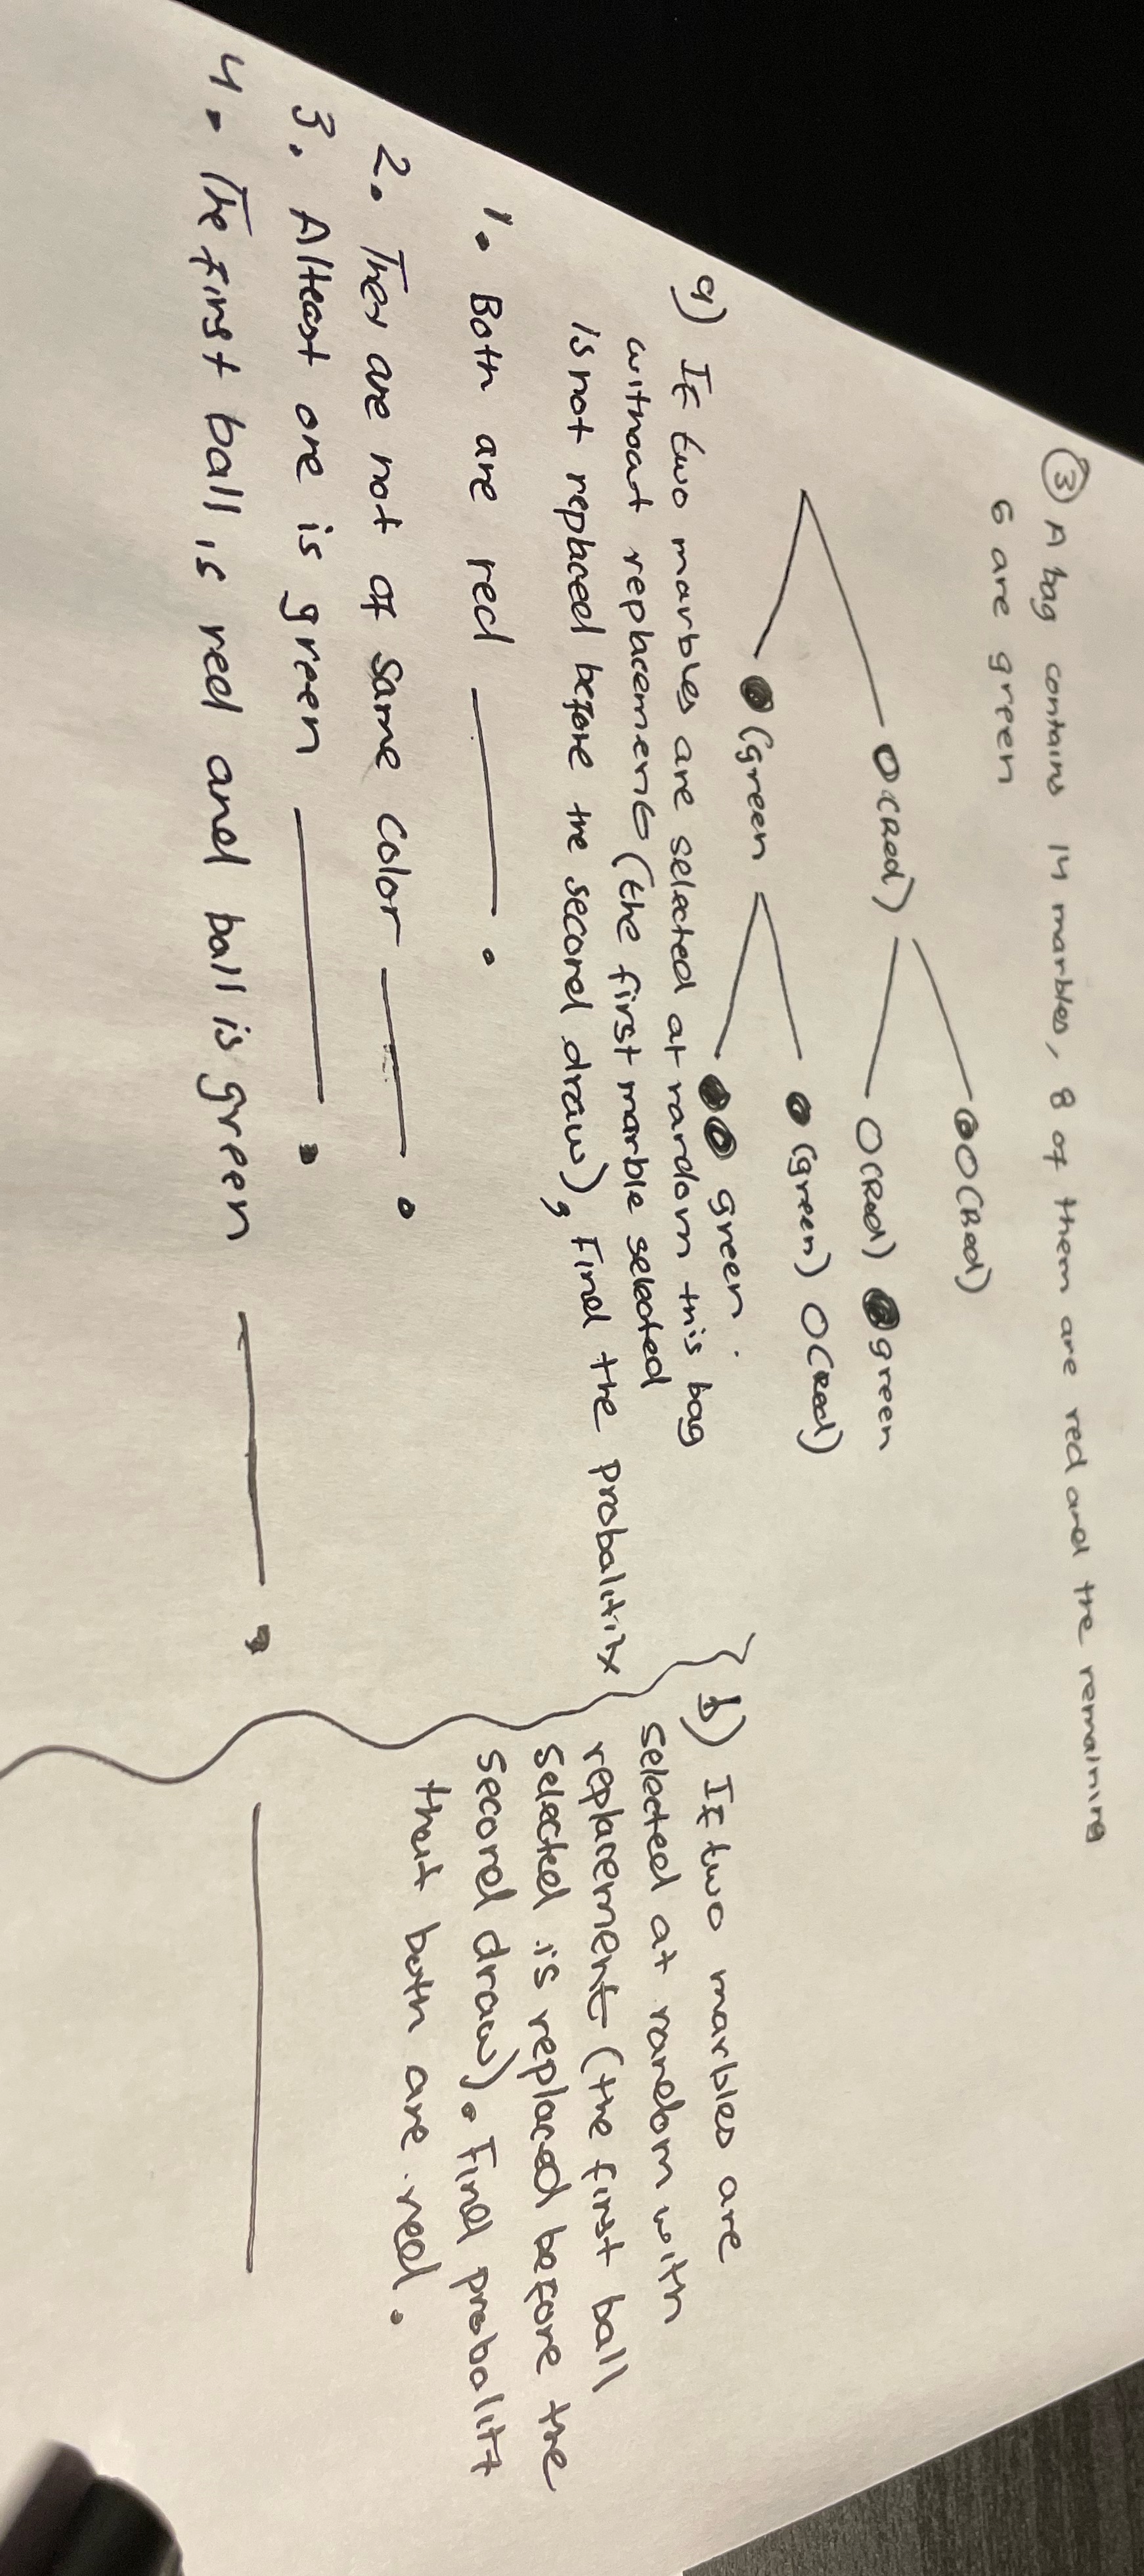 ③ A bag contains 14 marbles, 8 of them are red and the remaining
6 are green
O(Red)
OO(Red)
O(Red) green
(green
(green) O(Red)
green.
a) If two marbles are selected at random this bag
without replacement (the first marble selected
is not replaced before the second draw), Find the probability
1. Both are red
2. They are not of same color
3. Atleast one is green
4. The first ball is red and ball is green
b) If two marbles are
selected at random with
replacement (the first ball
selected is replaced before the
second draw). Find probability
that both are red.